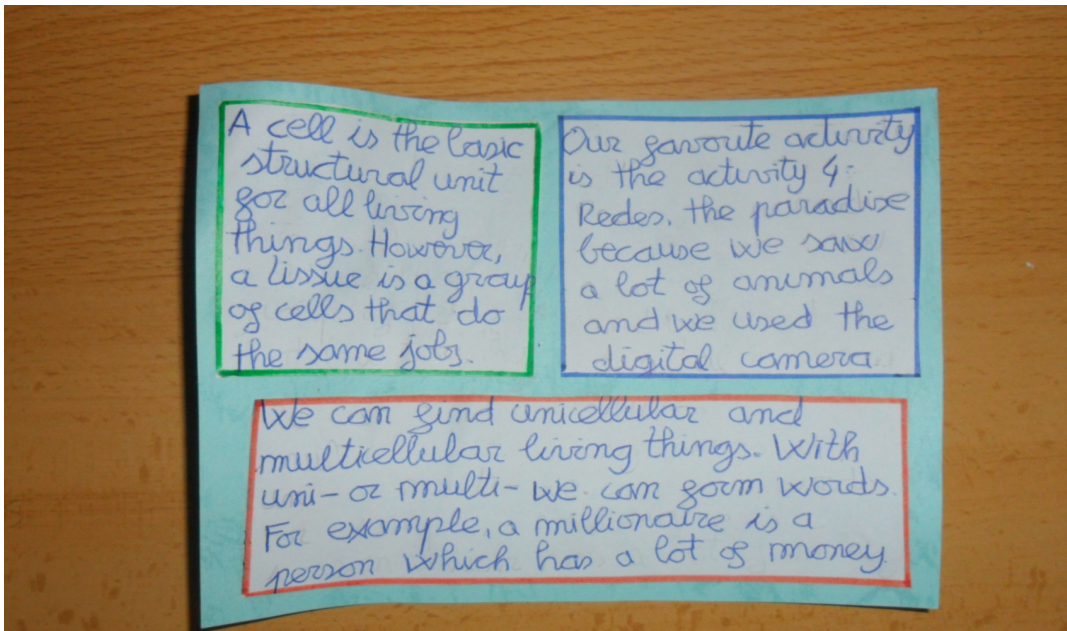 A cell is the basic
structural unit
for all living
things. However,
a tissue is a group
of cells that do
the same jobs.
Our favourite activity
is the activity 4:
Redes, the paradise
because we saw
a lot of animals
and we used the
digital camera.
We can find unicellular and
multicellular living things. With
uni- or multi- we can form words.
For example, a millionaire is a
person which has a lot of money